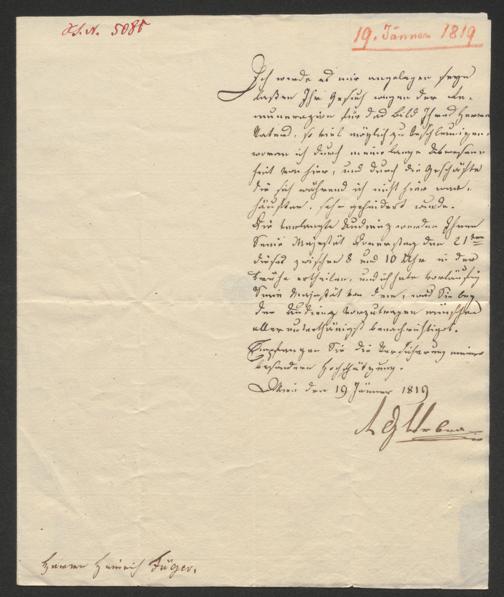 J.N. 5085
19. Jänner 1819
Ich werde es mir angelegen seyn
laßen Ihr Gesuch wegen der Re-
muneration für das Bild Ihres Herrn
Vaters, so viel möglich zu beschleunigen,
woran ich durch meine lange Abwesen-
heit von hier, und durch die Geschäfte
die sich während ich nicht hier war,
häuften, sehr gehindert wurde.
Die verlangte Audienz werden Ihnen
Seine Majestät Donnerstag den 21ten
dieses zwischen 8 und 10 Uhr in der
Frühe ertheilen, und ich habe vorläufig
Seine Majestät von dem, was Sie bey
der Audienz vorzutragen wünschen
allerunterthänigst benachrichtigt.
Empfangen Sie die Versicherung meiner
besondern Hochschätzung.
Wien den 19 Jänner 1819
Herrn Heinrich Füger.